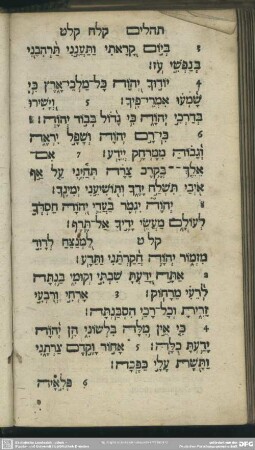 תהלים קלח קלט
3 בְּיוֹם קָרָאתִי וַתַּעֲנֵנִי תַּרְהִבֵנִי
בְנַפְשִׁי עֹז׃
4 יוֹדוּךָ יְהוָֹה כָּל־מַלְכֵי־אָרֶץ כִּי
שָׁמְעוּ אִמְרֵי־פִיךָ׃ 5 וְיָשִׁירוּ
בְּדַרְכֵי יְהוָֹה כִּי גָדוֹל כְּבוֹד יְהוָֹה׃
6 כִּי־רָם יְהוָֹה וְשָׁפָל יִרְאֶה
וְגָבוֹהַּ מִמֶּרְחָק יְיֵדָע׃ 7 אִם־
אֵלֵךְ־־בְּקֶרֶב צָרָה תְּחַיֵּנִי עַל אַף
אֹיְבַי תִּשְׁלַח יָדֶךָ וְתוֹשִׁיעֵנִי יְמִינֶךָ׃
יְהוָֹה יִגְמֹר בַּעֲדִי יְהוָֹה חַסְדְּךָ
לְעוֹלָם מַעֲשֵׂי יָדֶיךָ אַל־תֶּרֶף׃
קלט לַמְנַצֵּחַ לְדָוִד
מִזְמוֹר יְהוָֹה חֲקַרְתַּנִי וַתֵּדָע׃
2 אַתָּה יָדַעְתָּ שִׁבְתִּי וְקוּמִי בַּנְתָּה
לְרֵעִי מֵרָחוֹק׃ 3 אָרְחִי וְרִבְעִי
זֵרִיתָ וְכָל־דְּרָכַי הִסְכַּנְתָּה׃
4 כִּי אֵין מִלָּה בִּלְשׁוֹנִי הֵן יְהוָֹה
יָדַעְתָּ כֻלָּהּ׃ 5 אָחוֹר וָקֶדֶם צַרְתָּנִי
וַתָּשֶׁת עָלַי כַּפֶּכָה׃
6 פְּלִאיָּה
DFG